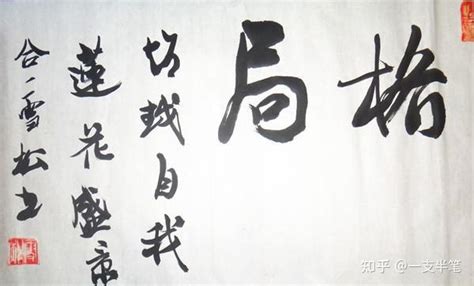 格局
自我
蓮花盛京
合一雪松书
知乎 @一支半笔